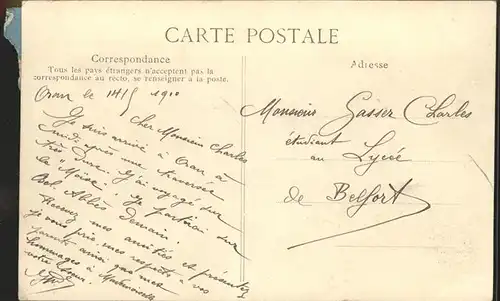 CARTE POSTALE
Correspondance
Tous les pays étrangers n'acceptent pas la
correspondance au recto, se renseigner à la poste.
Adresse
Oran le 14/5 1910
Cher Monsieur Charles
Je suis arrivé à Oran à
midi après une traversée
très dure. J'ai voyagé sur
la "Moïse". Je partirai sur
Bel Abbès demain.
Recevez mes amitiés et présentez
je vous prie, mes respects à vos
parents ainsi que mes
hommages à Mademoiselle
votre sœur.
Monsieur Gasser Charles
étudiant
au Lycée
de Belfort